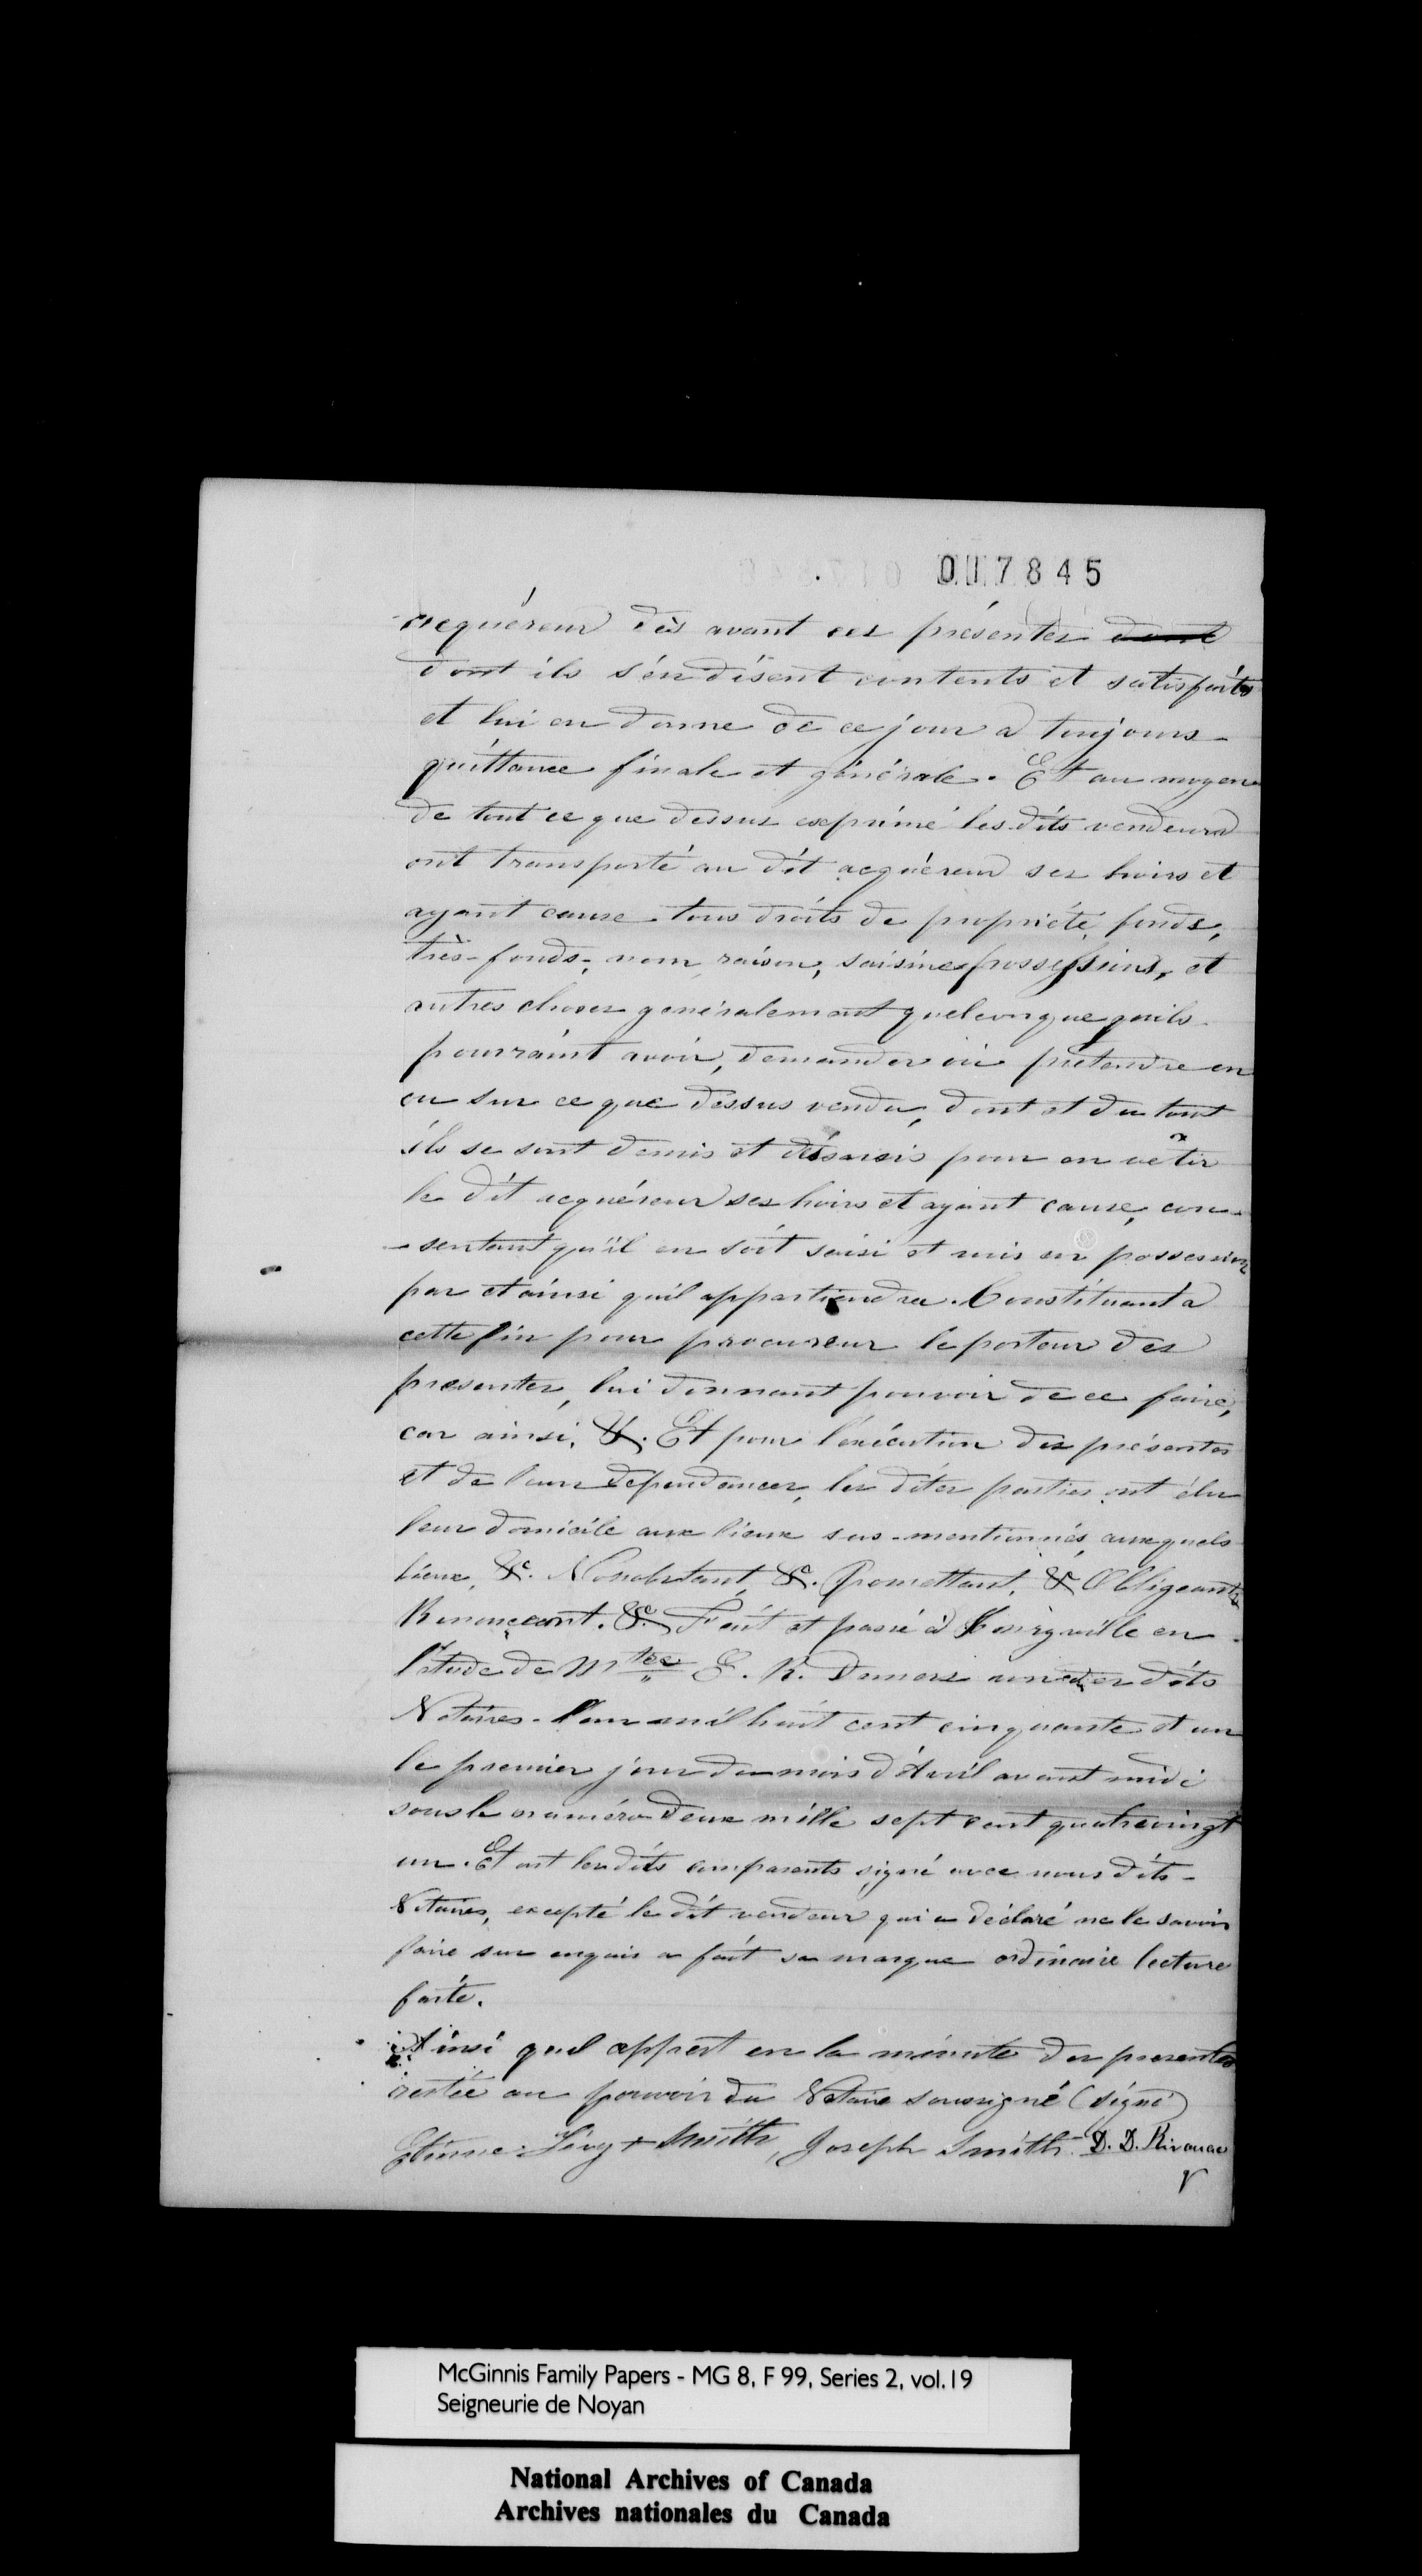 017845
acquéreur dès avant ces présentes dont
dont ils s'en disent contents et satisfaits
et lui en donne de ce jour a toujours -
quittance finale et générale. Et au moyen
de tout ce que dessus exprimé les dits vendeurs
ont transporté au dit acquéreur ses hoirs et
ayant cause tous droits de propriété, fonds,
très-fonds, nom, raison, saisines possessions, et
autres choses generalement quelconque qu'ils
pourraint avoir, demander ou prétendre en
ou sur ce que dessus vendu, dont et du tout
ils se sont demis et désaisis pour en vêtir
le dit acquéreur ses hoirs et ayant cause, con-
- sentant qu'il en soit saisi et mis en possession
par et ainsi qu'il appartiendra. Constituant a
cette fin pour procureur le porteur des
presentes, lui donnant pouvoir de ce faire,
car ainsi, &. Et pour l'exécution des présentes
et de leurs dependances, les dites parties ont élu
leur domicile aux lieux sus-mentionnés, auxquels
lieux, &c. Nonobstant, &c. Promettant, & Obligeant,
Renonceant. &c. Fait et passé à en
l'étude de Mtre E. R. Demers un des dits
Notaires - l'an mil huit cent cinquante et un
le premier jour du mois d'Avril avant midi
sous le numéro deux mille sept cent quatrevingt
un. Et ont les dits comparants signé avec nous dits -
Notaires, excepté le dit vendeur qui a déclaré ne le savoir
faire sur enquis a fait sa marque ordinaire lecture
faite.
Ainsi quel appert en la minute des presentes
restée au pouvoir du Notaire soussigné (signé)
Etienne Smith, Joseph Smith. D. D.
McGinnis Family Papers - MG 8, F 99, Series 2, vol.19
Seigneurie de Noyan
National Archives of Canada
Archives nationales du Canada